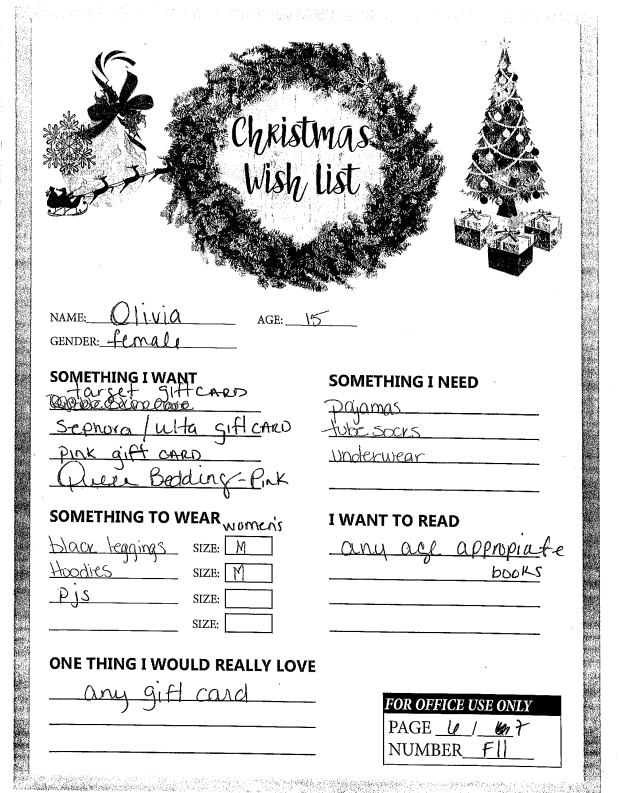 Christmas
Wish List
NAME: Olivia AGE: 15
GENDER: female
SOMETHING I WANT
target gift CARD
Sephora / ulta gift CARD
PINK gift CARD
Queen Bedding - Pink
SOMETHING I NEED
pajamas
tube socks
underwear
SOMETHING TO WEAR women's
black leggings SIZE: M
Hoodies SIZE: M
Pjs SIZE:
SIZE:
I WANT TO READ
any age appropiate
books
ONE THING I WOULD REALLY LOVE
any gift card
FOR OFFICE USE ONLY
PAGE 6 / 7
NUMBER F11